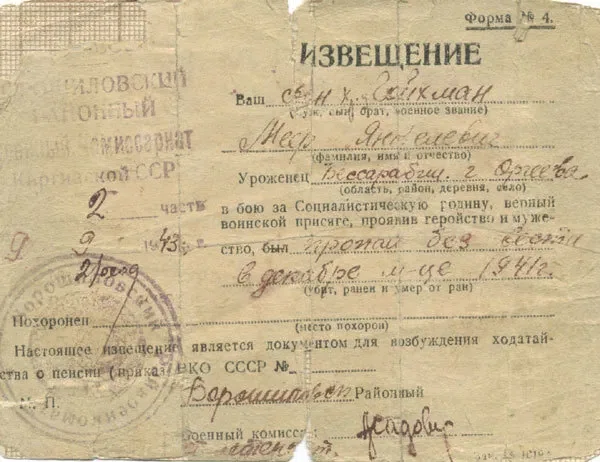 Форма № 4.
ИЗВЕЩЕНИЕ
ОШИЛОВСКИЙ
ЙОННЫЙ
ный Комиссариат
Киргизской ССР
2 часть
9 9 1943 г.
Ваш сын
(муж, сын, брат, военное звание)
Меер Янкелевич
(фамилия, имя и отчество)
Уроженец Бессарабии г. Оргеева
(область, район, деревня, село)
в бою за Социалистическую родину, верный
воинской присяге, проявив геройство и муже-
ство, был пропал без вести
в декабре м-це 1941 г.
(убит, ранен и умер от ран)
Похоронен
(место похорон)
Настоящее извещение является документом для возбуждения ходатай-
ства о пенсии (приказ НКО СССР №
М. П. Ворошиловск Районный
военный комиссар